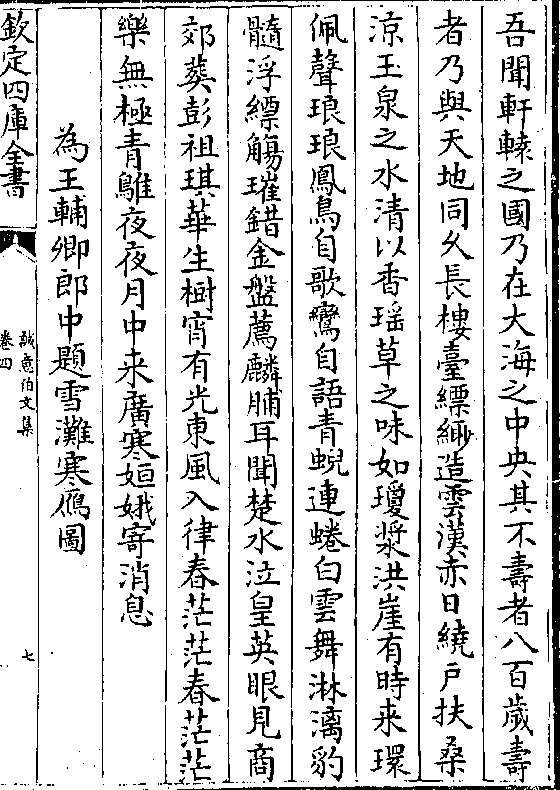 吾聞軒轅之國乃在大海之中央其不壽者八百歲壽
者乃與天地同久長樓臺縹緲造雲漢赤日繞戶扶桑
涼玉泉之水清以香瑶草之味如瓊漿洪崖有時来環
佩聲琅琅鳳鳥自歌鸞自語青蜺連蜷白雲舞淋漓豹
髓浮縹觴璀錯金盤薦麟脯耳聞楚水泣皇英眼見商
郊葬彭祖琪華生樹宵有光東風入律春茫茫春茫茫
樂無極青鵻夜夜月中来廣寒姮娥寄消息
為王輔卿郎中題雪灘寒鴈圖
欽定四庫全書
誠意伯文集
卷四
七